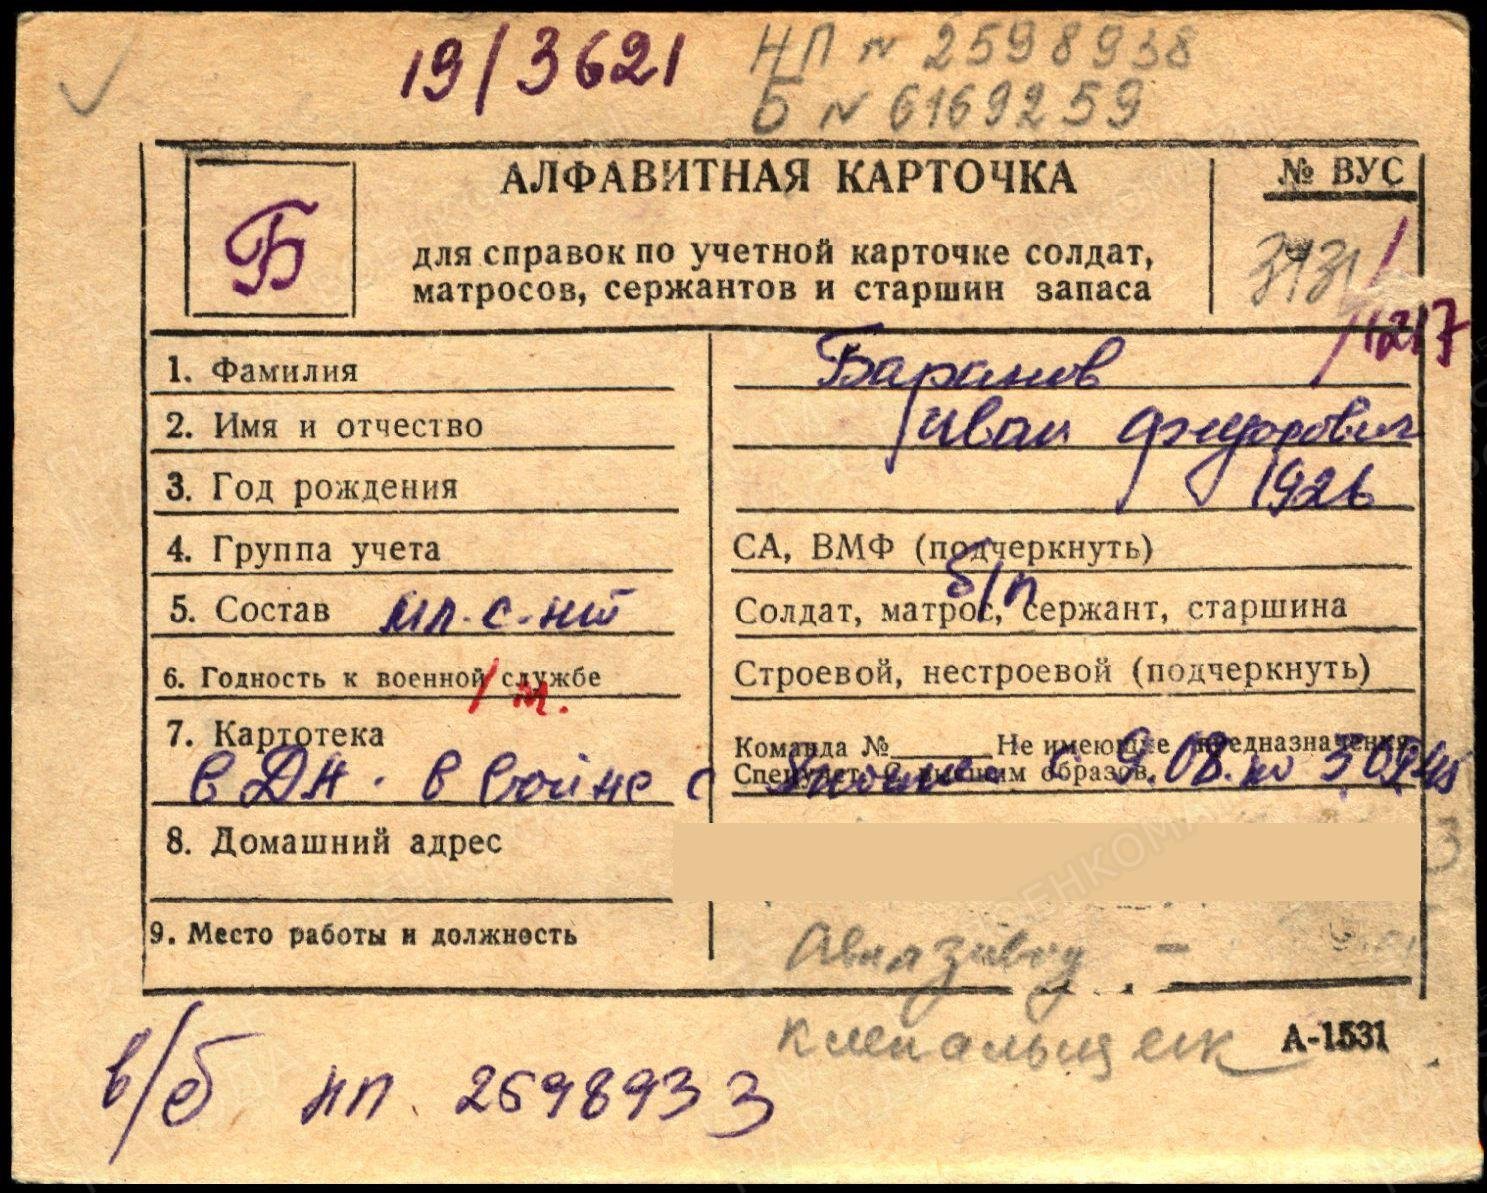 19/3621
НП № 2598938
Б № 6169259
Б
АЛФАВИТНАЯ КАРТОЧКА
для справок по учетной карточке солдат,
матросов, сержантов и старшин запаса
№ ВУС
3131
1217
1. Фамилия Баранов
2. Имя и отчество Иван Федорович
3. Год рождения 1926
4. Группа учета СА, ВМФ (подчеркнуть)
б/п
5. Состав мл. с-нт Солдат, матрос, сержант, старшина
6. Годность к военной службе Строевой, нестроевой (подчеркнуть)
7. Картотека Команда № Не имеющие предназначения
Спецучет. С высшим образов.
в ДА. в войне с Японией с 9.08. по 3.09.45
8. Домашний адрес
9. Место работы и должность Авиазавод -
клепальщик
А-1531
в/б нп. 2598933